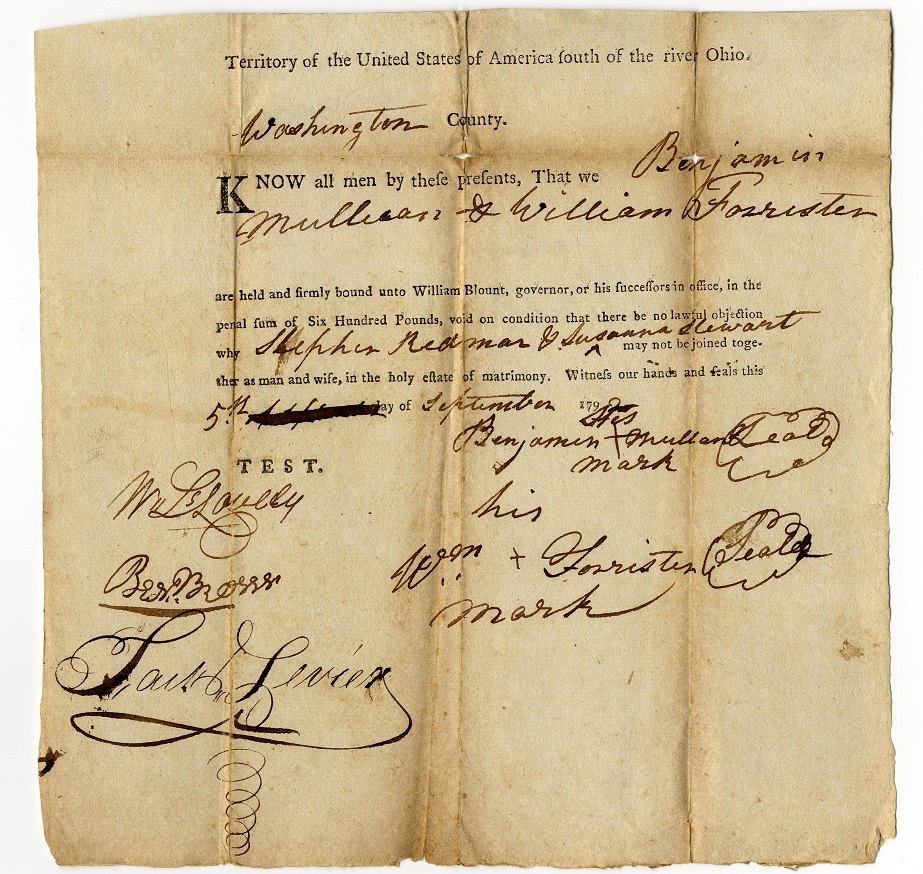 Territory of the United States of America ſouth of the river Ohio.
Washington County.
KNOW all men by theſe preſents, That we Benjamin
Mullican & William Forrister
are held and firmly bound unto William Blount, governor, or his ſucceſſors in office, in the
penal ſum of Six Hundred Pounds, void on condition that there be no lawful objection
why Stephen Redman & Susanna Stewart may not be joined toge-
ther as man and wife, in the holy eſtate of matrimony. Witneſs our hands and ſeals this
5th day of September 179
his
Benjamin + Mullican Seal
mark
TEST.
Wm Lovely
his
Wm + Forrister Seal
mark
Ben. Brown